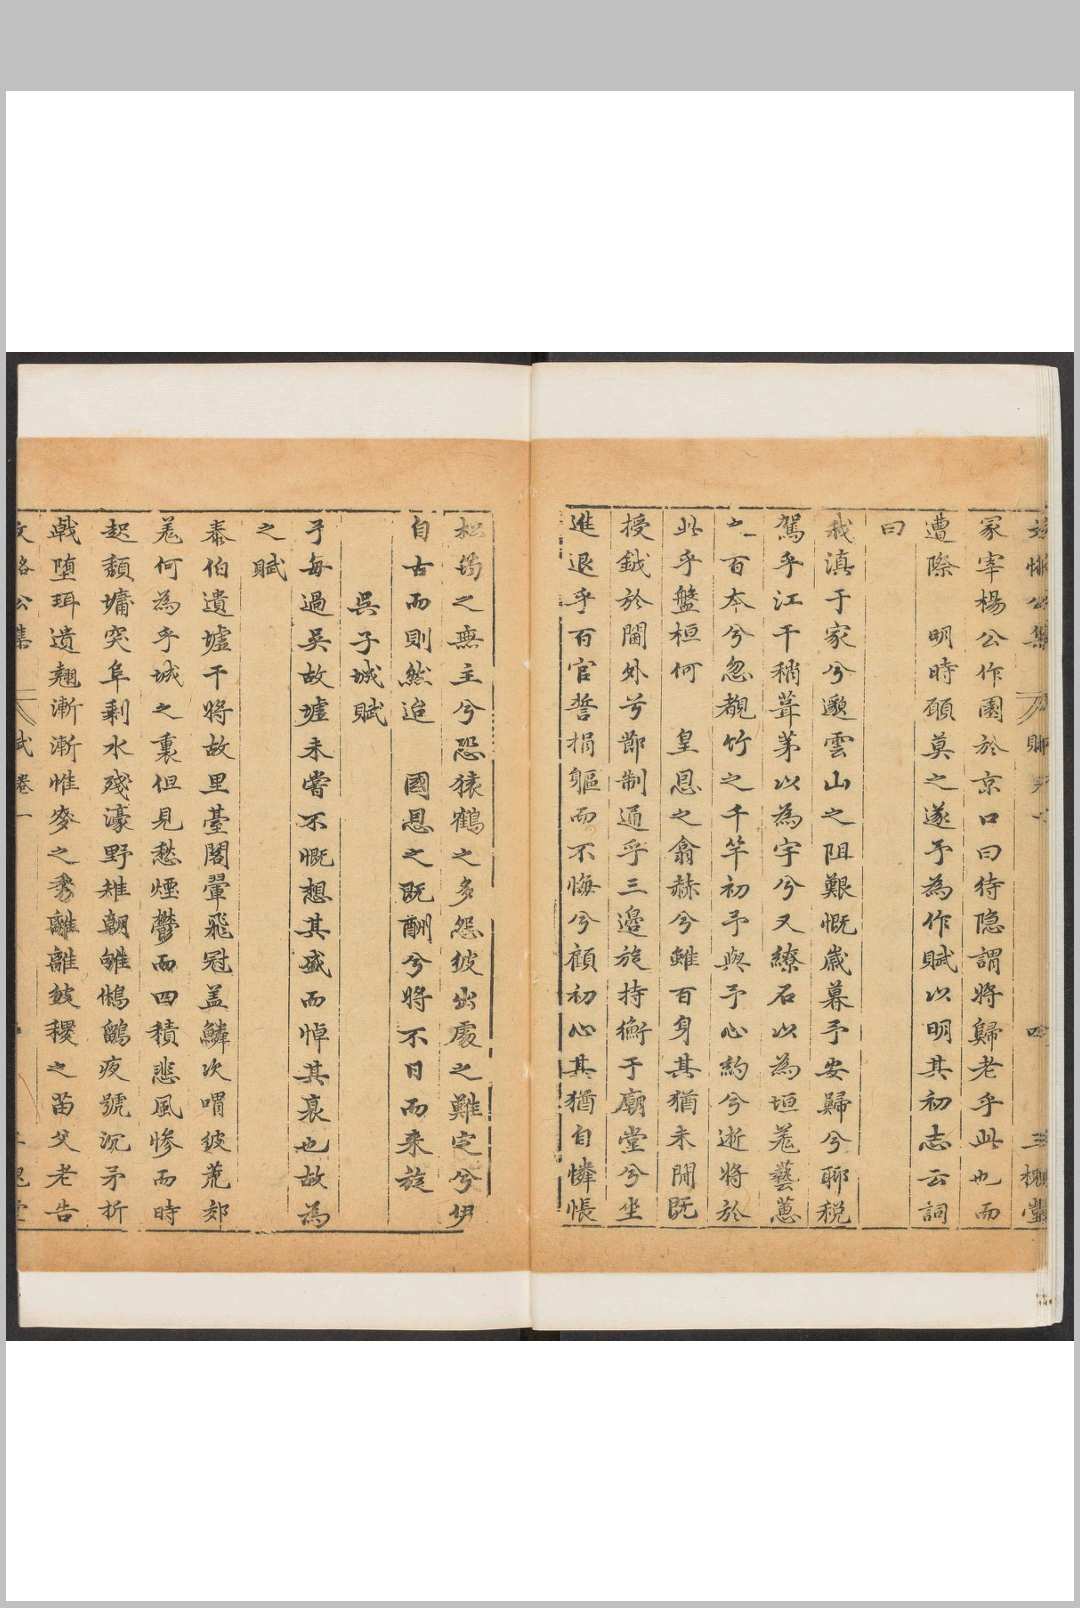 冡宰楊公作園於京口曰待隐謂將歸老乎此也而
遭際　明時碩莫之遂予為作賦以明其初志云詞
曰
我滇于家兮邈雲山之阻艱慨嵗暮予安歸兮聊稅
駕乎江干稍葺茅以為宇兮又繚石以為垣羌藝蕙
之百本兮忽覩竹之千竿初予與予心約兮逝將於
此乎盤桓何　皇恩之翕赫兮雖百身其猶未閒既
授鉞於閫外兮節制通乎三邉旋持衡于廟堂兮坐
進退乎百官誓捐軀而不悔兮顧初心其猶自憐悵
松筠之無主兮恐猿鶴之多怨彼出處之難定兮伊
自古而則然迨　國恩之既酬兮將不日而来旋
吳子城賦
予每過吳故墟未嘗不慨想其盛而悼其衰也故為
之賦
泰伯遺墟干將故里臺閣翬飛冠盖鱗次喟彼荒郊
羌何為乎城之裏但見愁煙鬱而四積悲風慘而時
起頽墉突阜剩水殘濠野雉朝雊鵂鶹夜號沉矛折
戟堕珥遺翹漸漸惟麥之秀離離彼稷之苗父老告
文恪公集　賦卷一